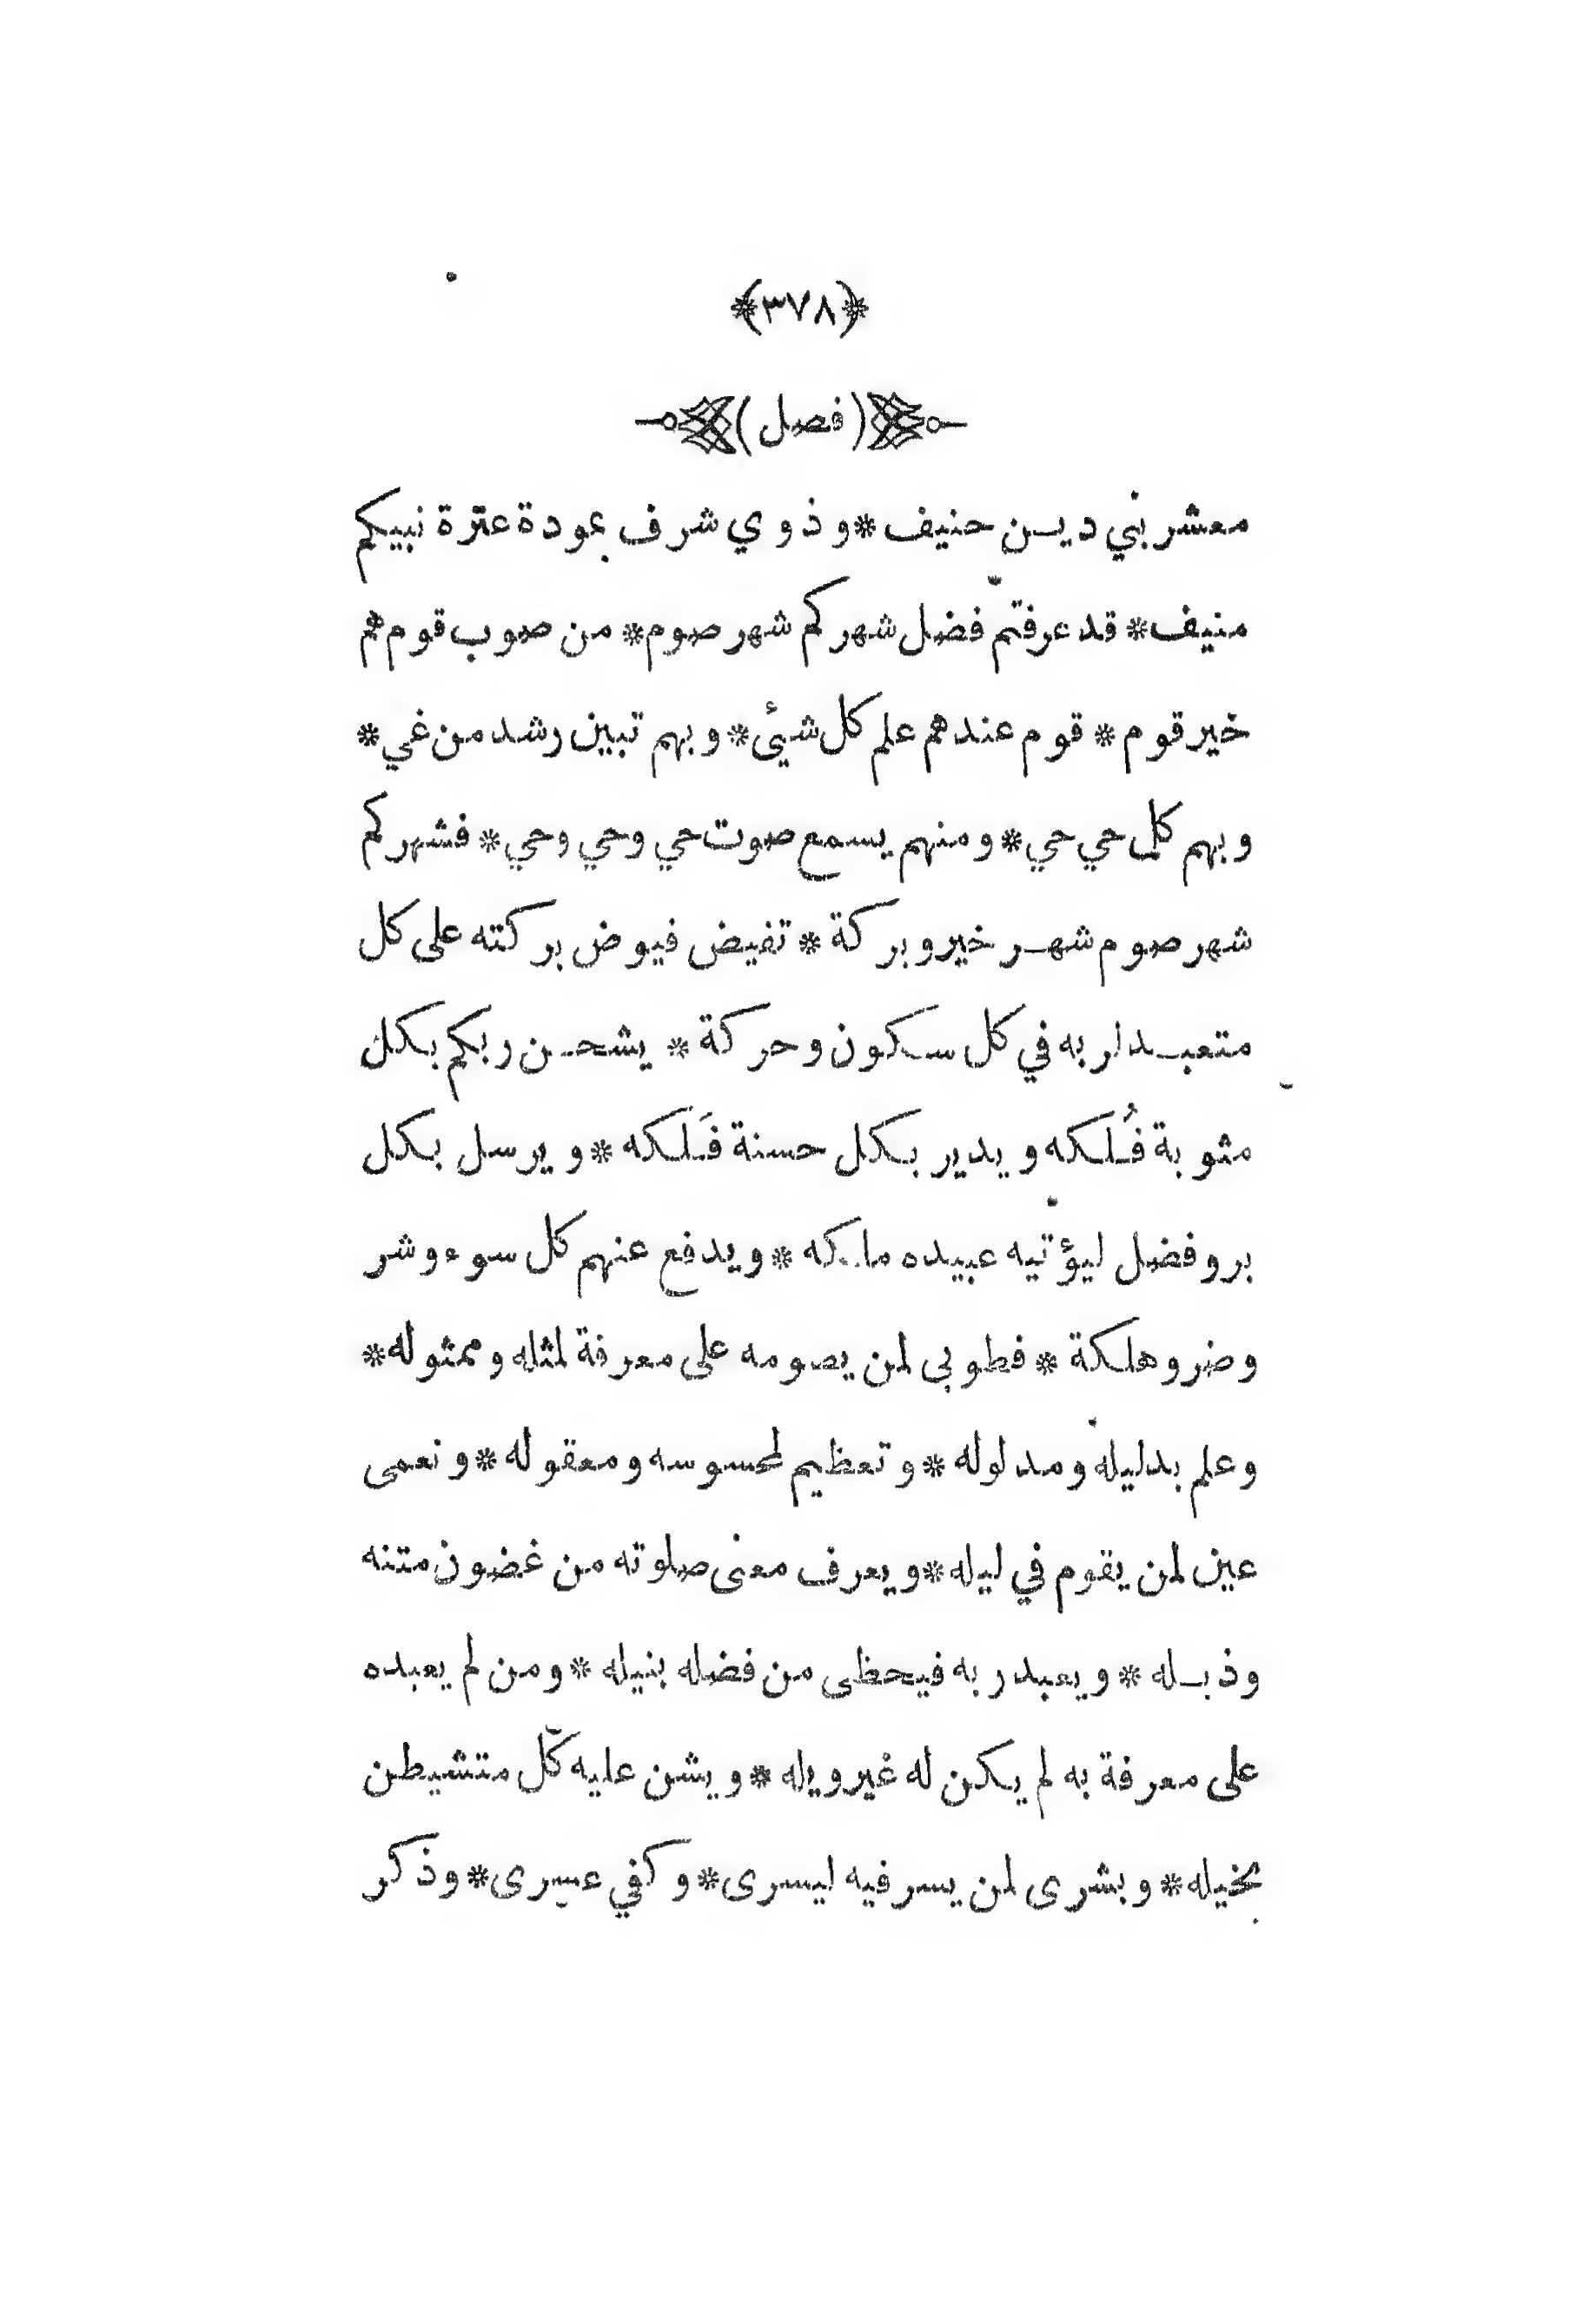 ﴿٣٧٨﴾
(فصل)
معشر بني ديـن حنيف * وذوي شرف بمودة عترة نبيكم
منيف * قد عرفتم فضل شهركم شهر صوم * من صوب قوم هم
خير قوم * قوم عندهم علم كل شيئ * وبهم تبين رشد من غي *
وبهم كل حي حي * ومنهم يسمع صوت حي وحي وحي * فشهركم
شهر صوم شهـر خير وبركة * تفيض فيوض بركته على كل
متعبـد لربه في كل سـكون وحركة * يشحـن ربكم بكل
مثوبة فُلـكه ويدير بـكل حسنة فَلـكه * ويرسل بكل
بر وفضل ليؤتيه عبيده ملـكه * ويدفع عنهم كل سوء وشر
وضر وهلـكة * فطوبى لمن يصومه على معرفة لمثله وممثوله *
وعلم بدليله ومدلوله * وتعظيم لمحسوسه ومعقوله * ونعمى
عين لمن يقوم في ليله * ويعرف معنى صلوته من غضون متنه
وذيـله * ويعبد ربه فيحظى من فضله بنيله * ومن لم يعبده
على معرفة به لم يكن له غير ويله * ويشن عليه كل متشيطن
بخيله * وبشرى لمن يسر فيه ليسرى * وكفي عسرى * وذكر